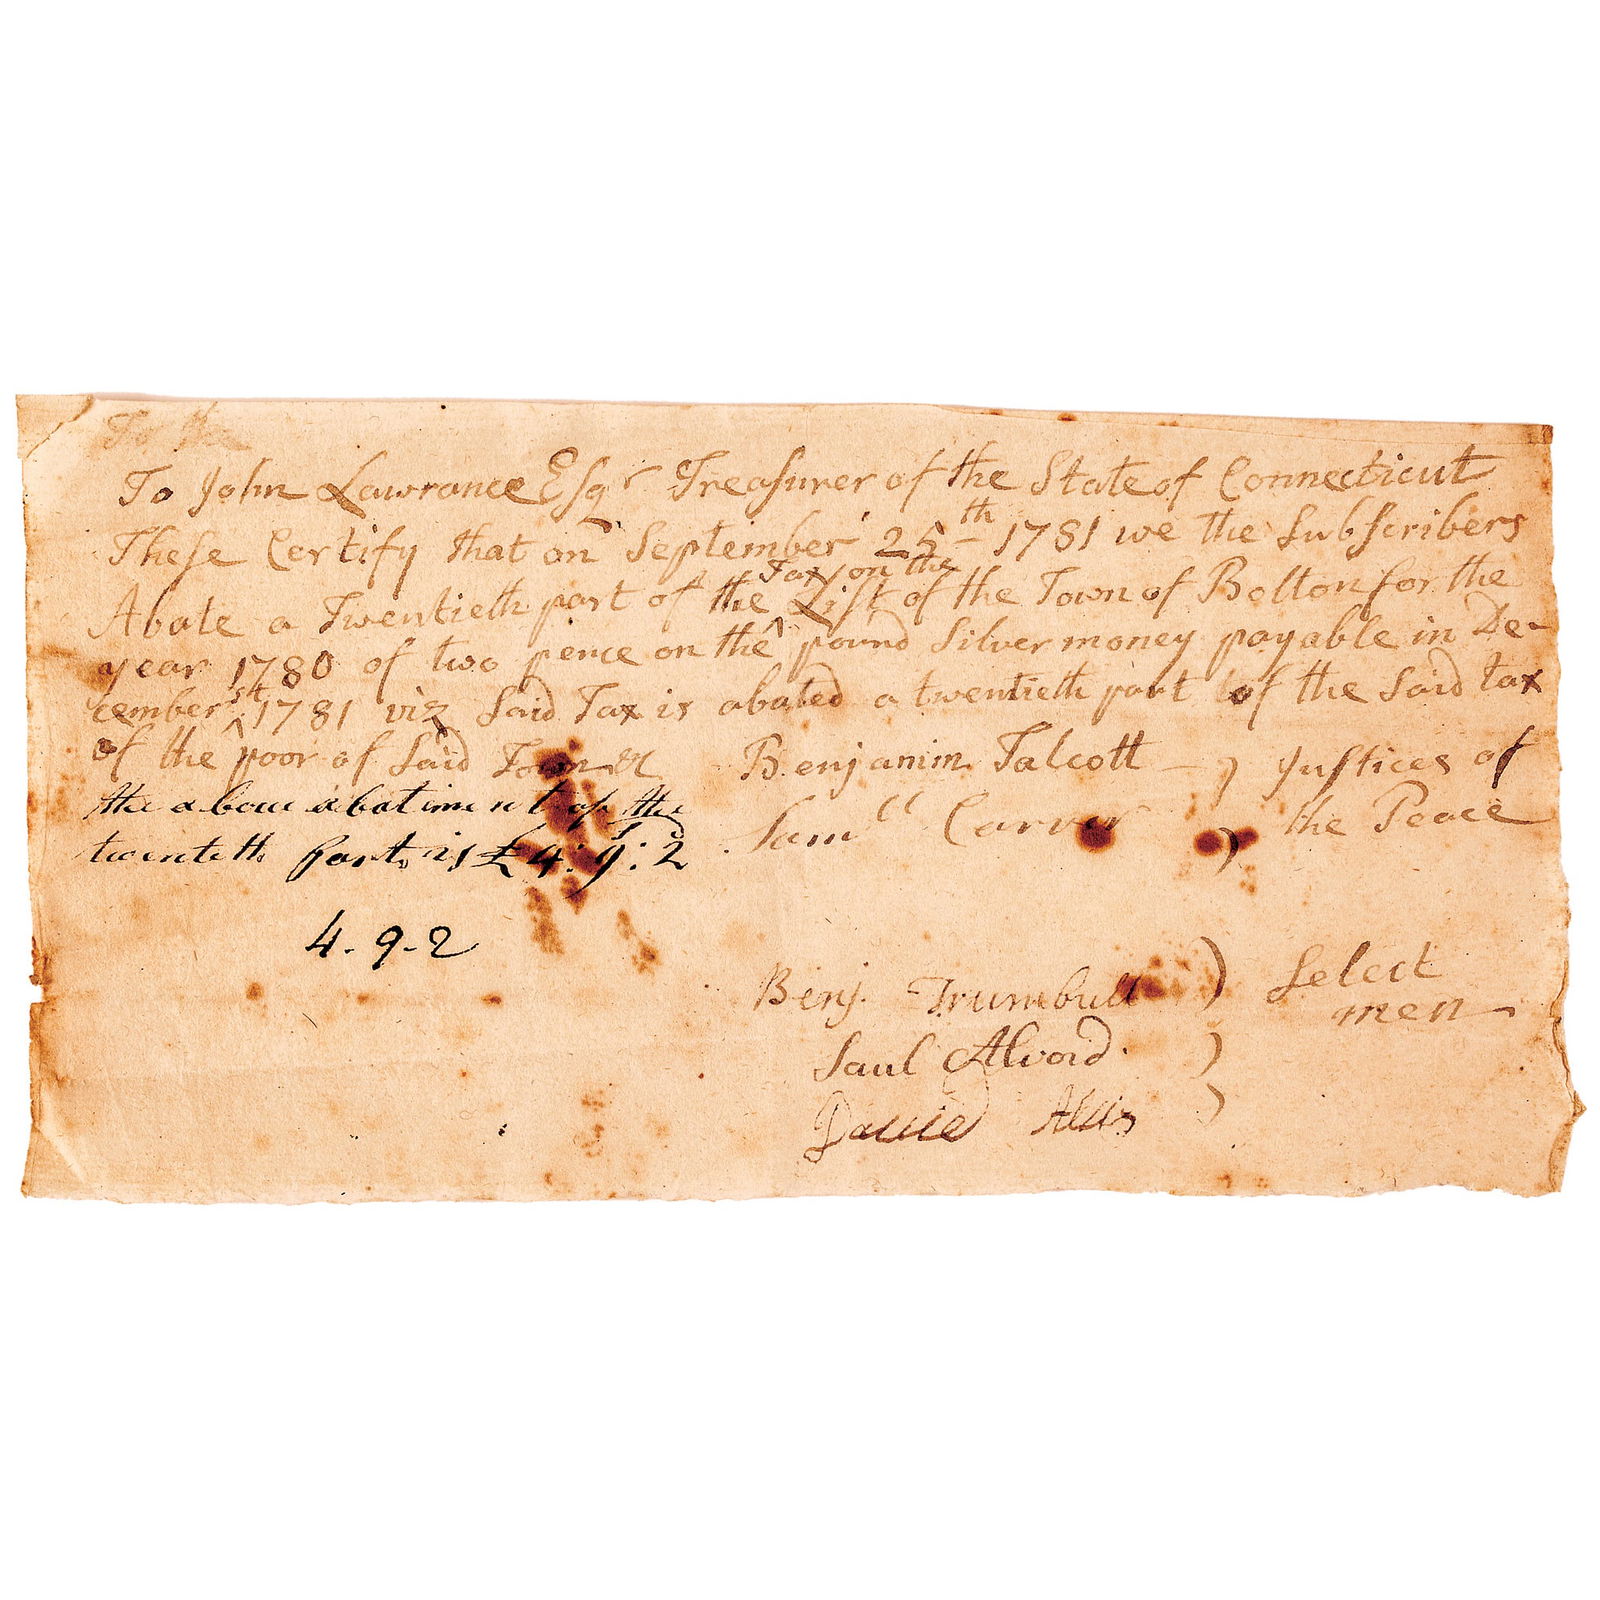 To John Lawrance Esqr Treasurer of the State of Connecticut
These Certify that on September 25th 1781 we the Subscribers
Tax on the
Abate a Twentieth part of the List of the Town of Bolton for the
year 1780 of two pence on the ^ pound Silver money payable in De-
cember 1st ^ 1781 viz Said Tax is abated a twentieth part of the Said tax
of the poor of Said Town &
the aboue abatiment of the
twenteth part is £4:9:2
4-9-2
Benjamin Talcott ) Justices of
Samll Carver ) the Peace
Benj. Trumbull ) Select
men
Saul Alvord )
David )